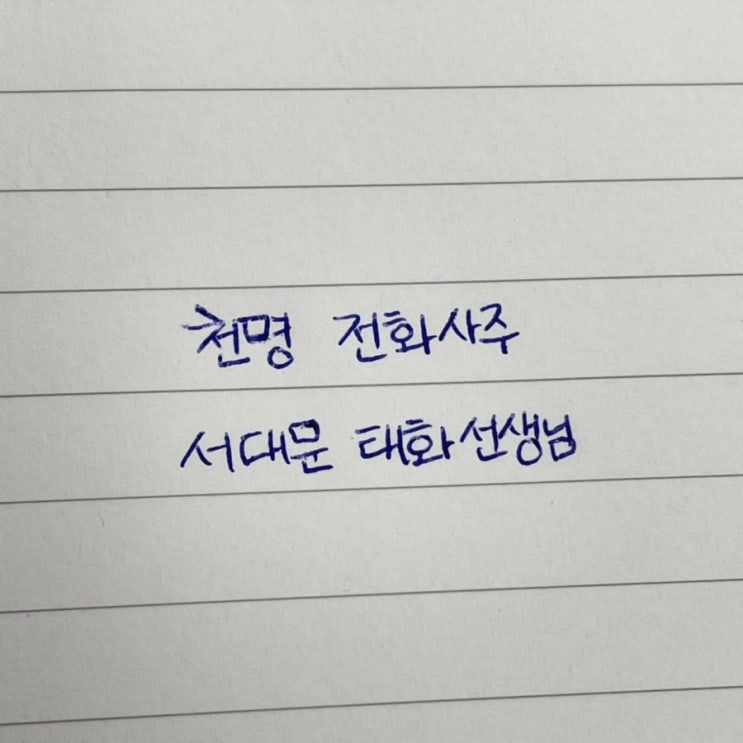 천명 전화사주
서대문 태화선생님